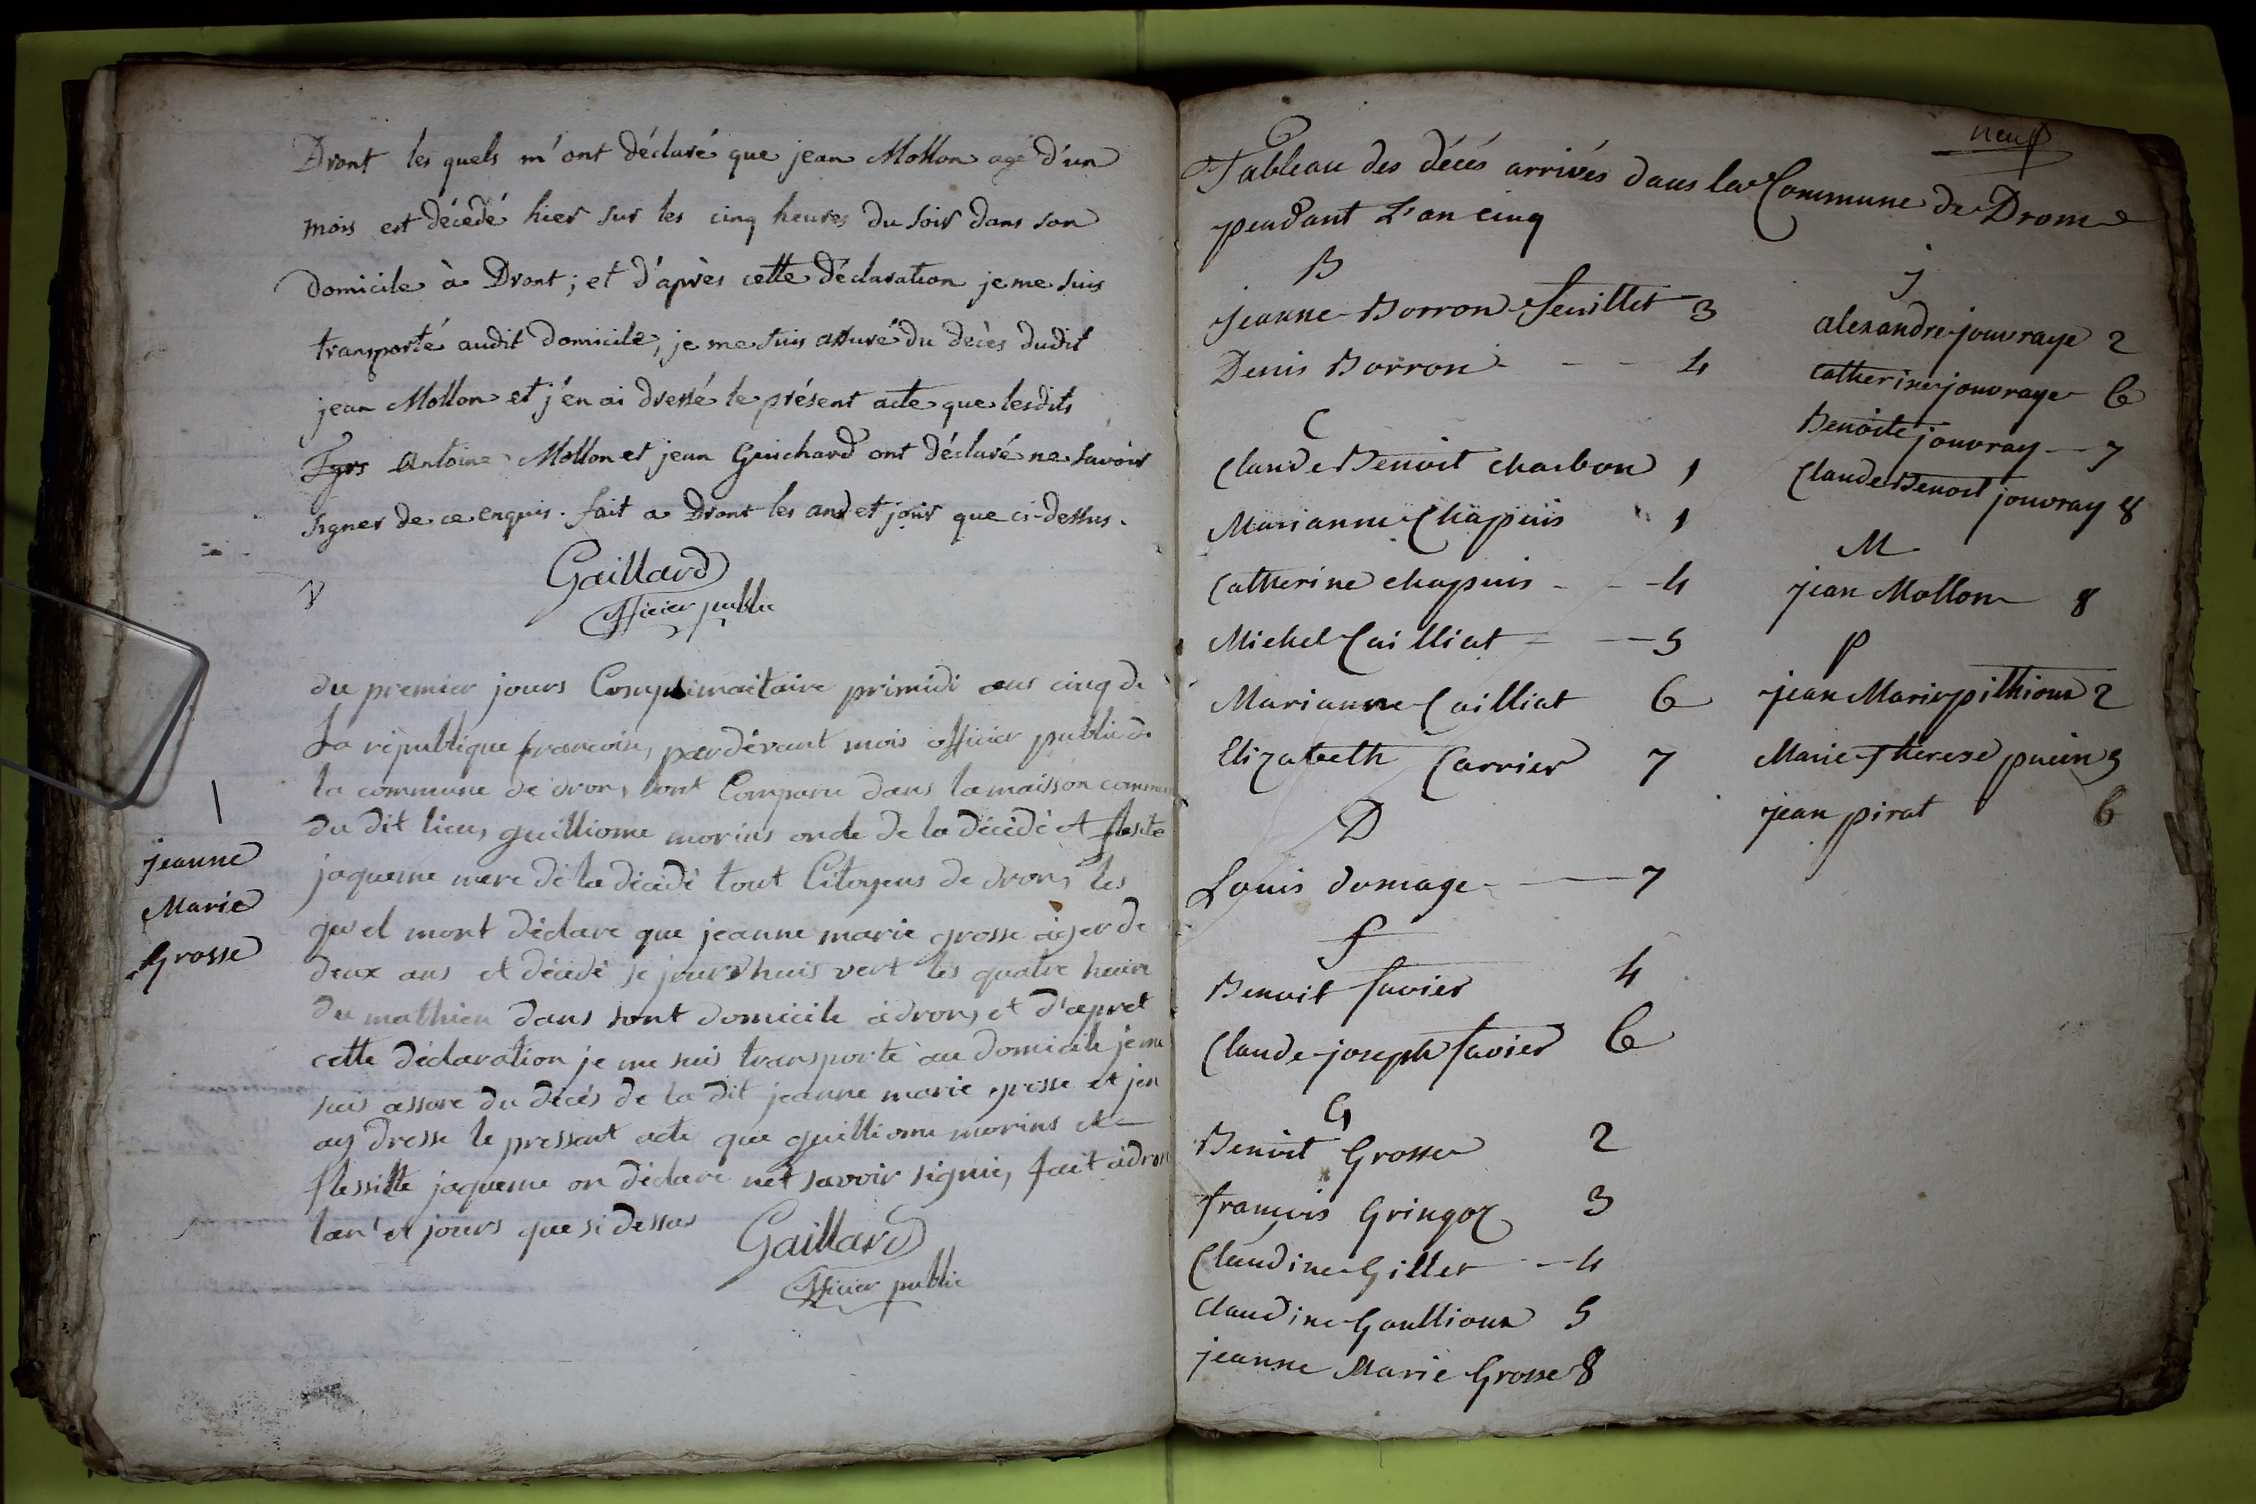 Dront les quels m'ont déclaré que jean Mollon agé d'un
mois est décedé hier sur les cinq heures du soir dans son
domicile à Dront; et d'après cette déclaration je me suis
transporté audit domicile, je me suis assuré du decès dudit
jean Mollon et j'en ai dressé le présent acte que lesdits
Antoine Mollon et jean Guichard ont déclaré ne savoir
signer de ce enquis. fait a Dront les and et jour que ci-dessus.
Gaillard
Officier public
du premier jours Complimaitaire primidi ans cinq de
La république francoise, pardévant mois officier public de
la commune de dron, sont Comparu dans la maisson commu
du dit lieu, guilliome morins oncle de la décédé et
jaqueme mere dé la décédé tout Citoyens de dron, les
quel mont déclare que jeanne marie grosse âger de
deux ans et décédé se jourdhuis vert les quatre heure
du mathieu dans sont domicile à dron, et d'apret
cette déclaration je me suis transporte au domicile je me
suis assure du décés de la dit jeanne marie grosse et jen
ay dresse le pressent acte que guilliome morins et
flessitte jaqueme on déclare net savoir signie, fait à dron
lan et jours que si dessus
Gaillard
Officier public
jeanne
Marie
Grosse
neuf
Tableau des décés arrivés dans la Commune de Drom
pendant L'an cinq
B
jeanne Borron feuillet 3
Denis Borron - - - 4
C
Claude Benoit charbon 1
Marianne Chapuis 1
Catherine chapuis - - 4
Michel Cailliat - - 5
Marianne Cailliat 6
Elizabeth Carrier 7
D
Louis domage - 7
f
Benoit favier 4
Claude joseph favier 6
G
Benoit Grosse 2
francois Gringoz 3
Claudine Gillet - 4
Claudine Goullioux 5
jeanne Marie Grosse 8
j
alexandre jouvraye 2
Catherine jouvraye 6
Benoite jouvray - 7
Claude Benoit jouvray 8
M
jean Mollon 8
p
jean Marie pithioux 2
Marie Therese 5
jean pirat 6